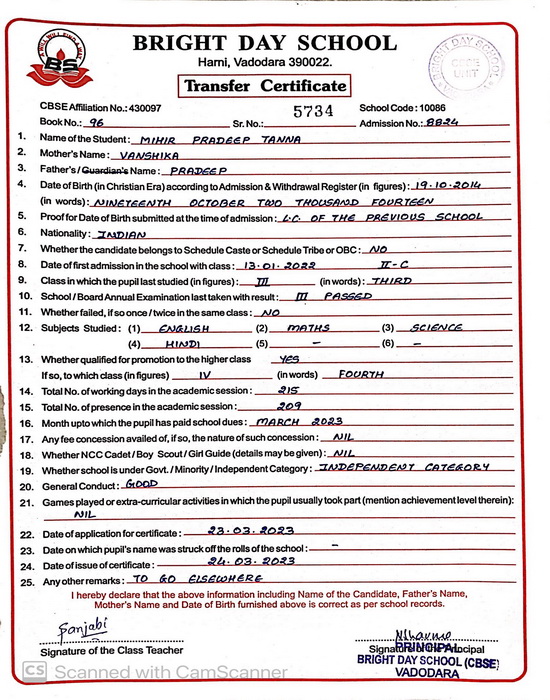 BRIGHT DAY SCHOOL
Harni, Vadodara 390022.
BRIGHT DAY SCHOOL
CBSE UNIT
BS
Transfer Certificate
CBSE Affiliation No.: 430097 5734 School Code : 10086
Book No.: 96 Sr. No.: Admission No.: 8824
1. Name of the Student : MIHIR PRADEEP TANNA
2. Mother's Name : VANSHIKA
3. Father's / Guardian's Name : PRADEEP
4. Date of Birth (in Christian Era) according to Admission & Withdrawal Register (in figures) : 19.10.2014
(in words) : NINETEENTH OCTOBER TWO THOUSAND FOURTEEN
5. Proof for Date of Birth submitted at the time of admission : L.C. OF THE PREVIOUS SCHOOL
6. Nationality : INDIAN
7. Whether the candidate belongs to Schedule Caste or Schedule Tribe or OBC : NO
8. Date of first admission in the school with class : 13.01.2022 II-C
9. Class in which the pupil last studied (in figures) : III (in words) : THIRD
10. School / Board Annual Examination last taken with result : III PASSED
11. Whether failed, if so once / twice in the same class : NO
12. Subjects Studied : (1) ENGLISH (2) MATHS (3) SCIENCE
(4) HINDI (5) - (6) -
13. Whether qualified for promotion to the higher class YES
If so, to which class (in figures) IV (in words) FOURTH
14. Total No. of working days in the academic session : 215
15. Total No. of presence in the academic session : 209
16. Month upto which the pupil has paid school dues : MARCH 2023
17. Any fee concession availed of, if so, the nature of such concession : NIL
18. Whether NCC Cadet / Boy Scout / Girl Guide (details may be given) : NIL
19. Whether school is under Govt. / Minority / Independent Category : INDEPENDENT CATEGORY
20. General Conduct : GOOD
21. Games played or extra-curricular activities in which the pupil usually took part (mention achievement level therein) :
NIL
22. Date of application for certificate : 23.03.2023
23. Date on which pupil's name was struck off the rolls of the school : -
24. Date of issue of certificate : 24.03.2023
25. Any other remarks : TO GO ELSEWHERE
I hereby declare that the above information including Name of the Candidate, Father's Name,
Mother's Name and Date of Birth furnished above is correct as per school records.
Signature of the Class Teacher
Signature of the Principal
PRINCIPAL
BRIGHT DAY SCHOOL (CBSE)
VADODARA
CS Scanned with CamScanner